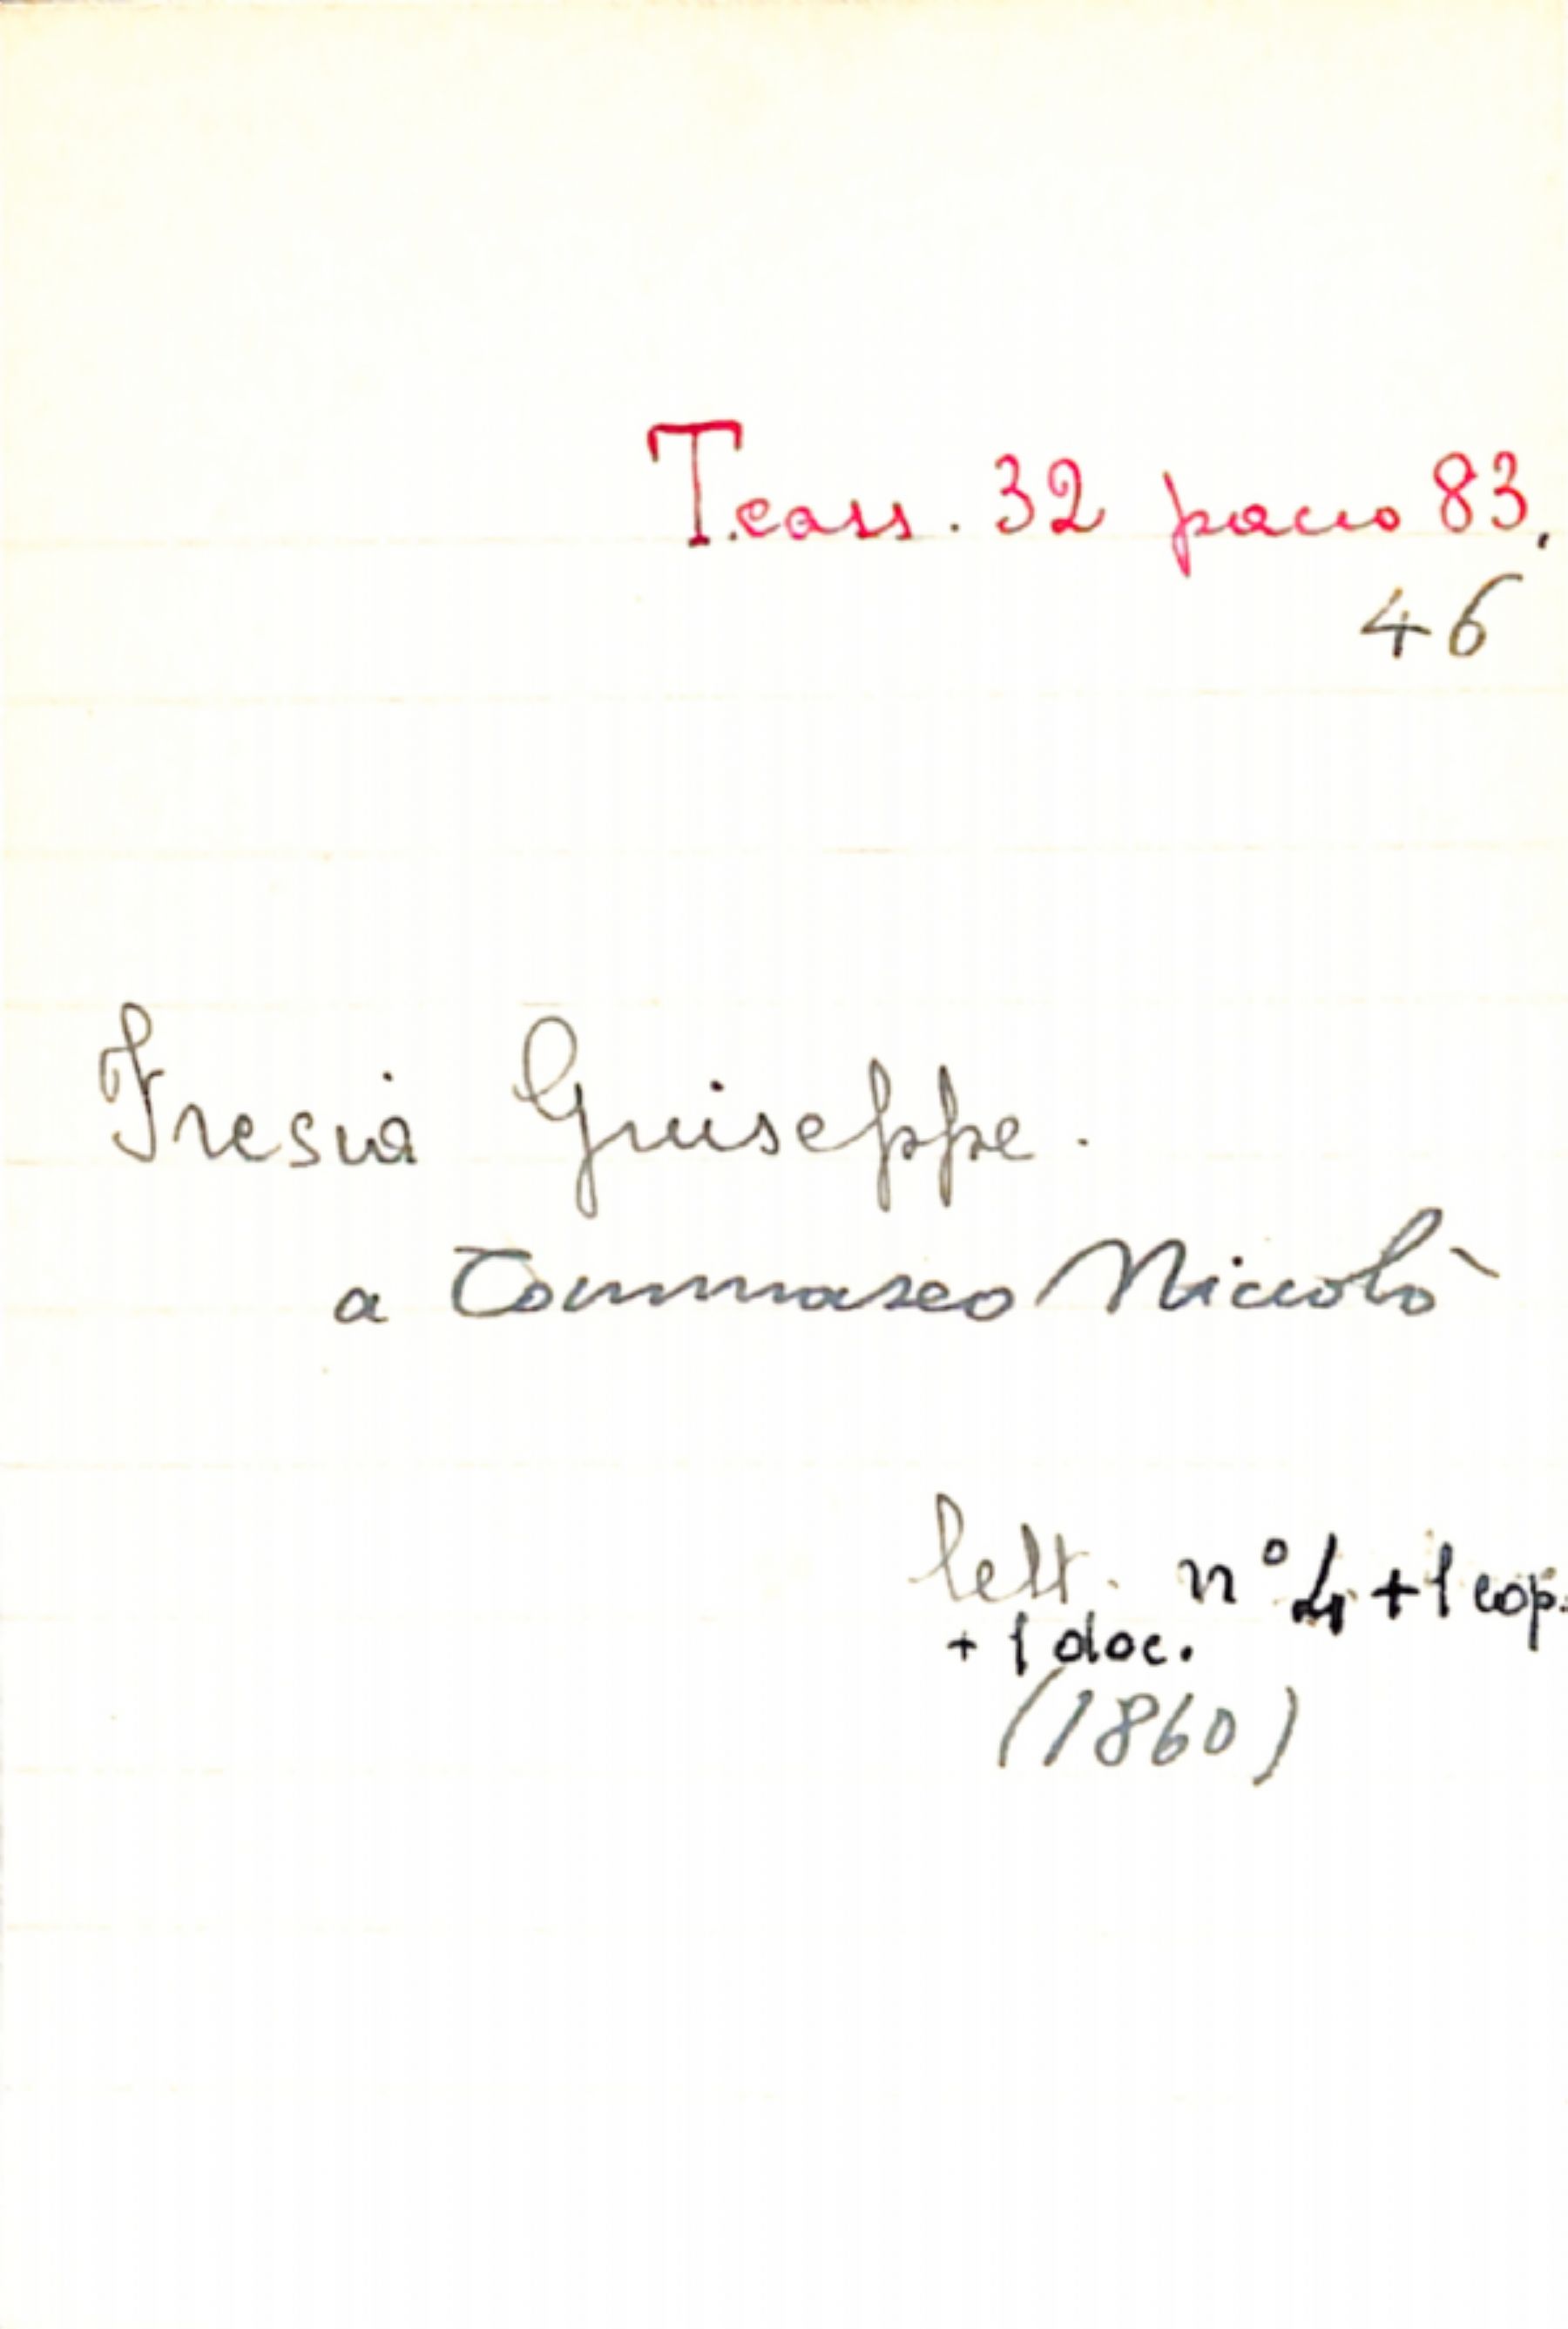 T. cass. 32 pacco 83,
46
Fresia Giuseppe.
a Tommaseo Niccolò
lett. n° 4 + 1 cop.
+ 1 doc.
(1860)